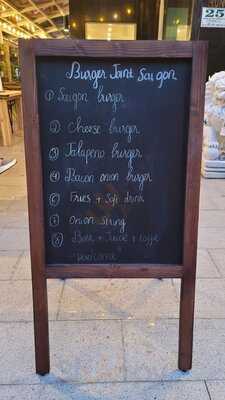 Burger Joint Saigon
① Saigon burger
② Cheese burger
③ Jalapeno burger
④ Bacon onion burger
⑥ Fries + Soft drink
⑦ Onion string
⑧ Beer + Juice + coffe
25